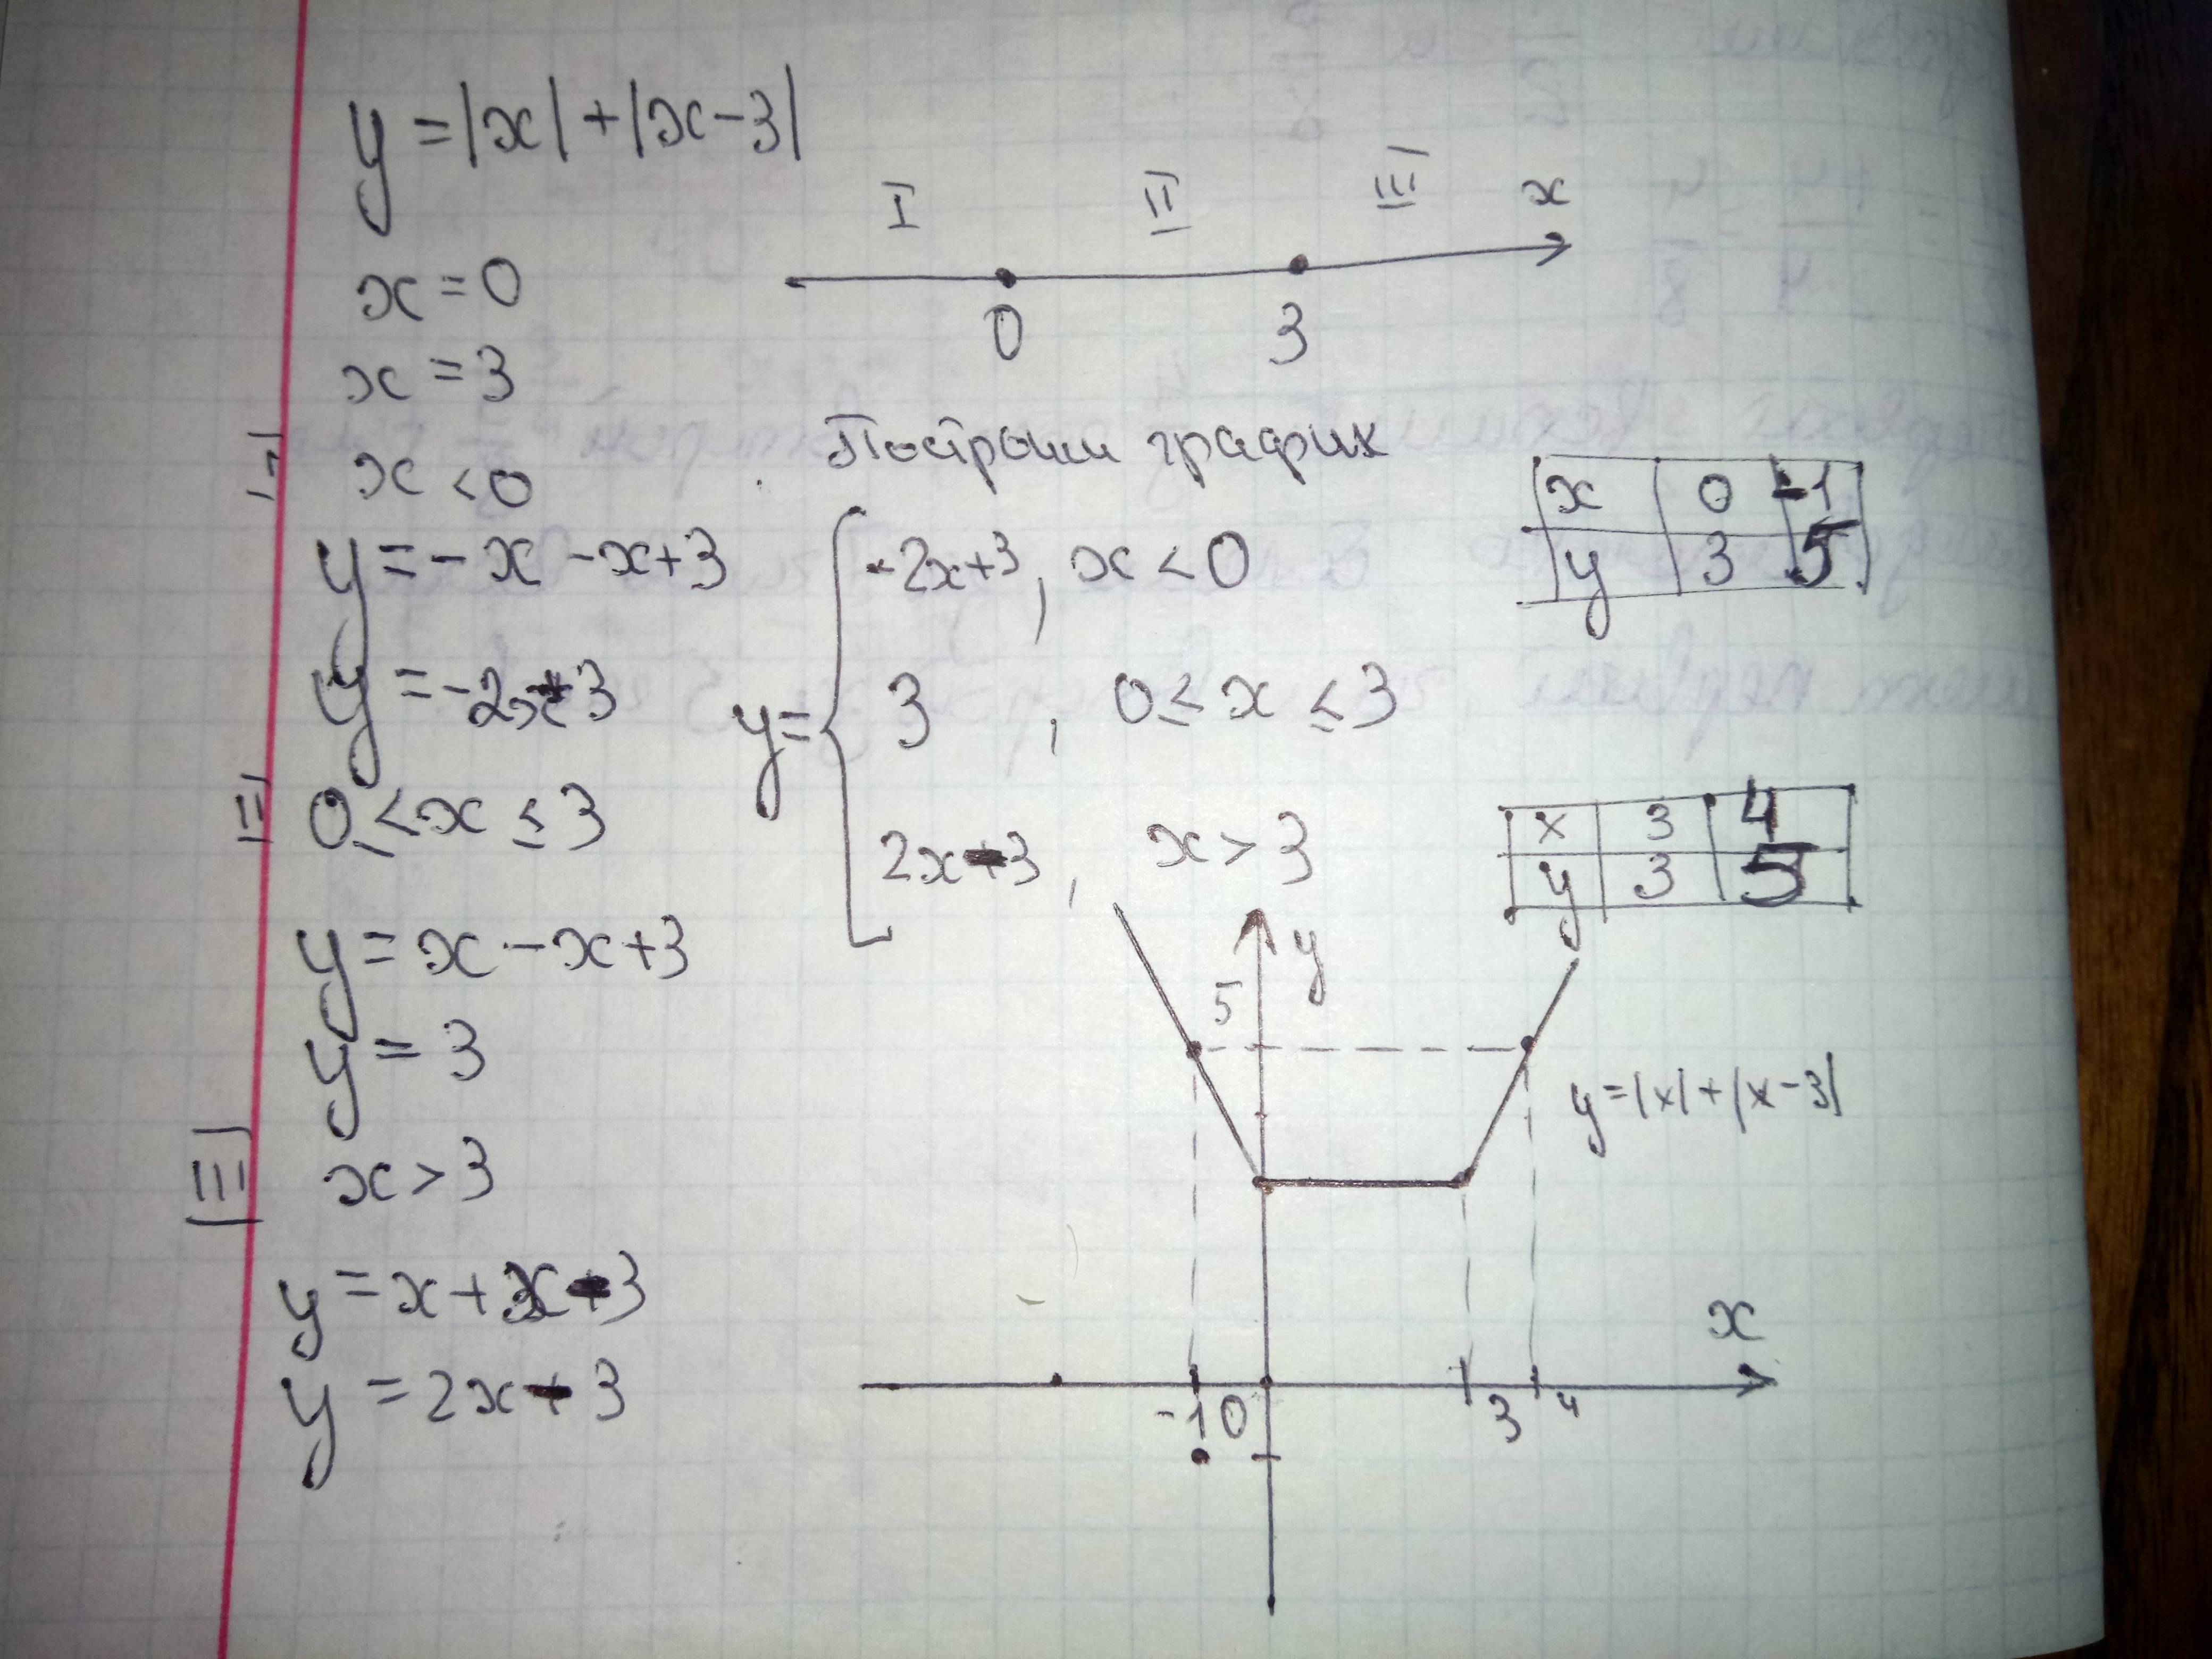 y = |x| + |x-3|
I II III x
0 3
x = 0
x = 3
I x < 0
Построим график
x 0 -1
y 3 5
y = -x -x+3
y = -2x+3
y = { -2x+3, x < 0
3, 0 ≤ x ≤ 3
2x-3, x > 3
II 0 ≤ x ≤ 3
x 3 4
y 3 5
y = x - x + 3
y = 3
III x > 3
y = x + x - 3
y = 2x - 3
y
5
y = |x| + |x-3|
x
-1 0 3 4